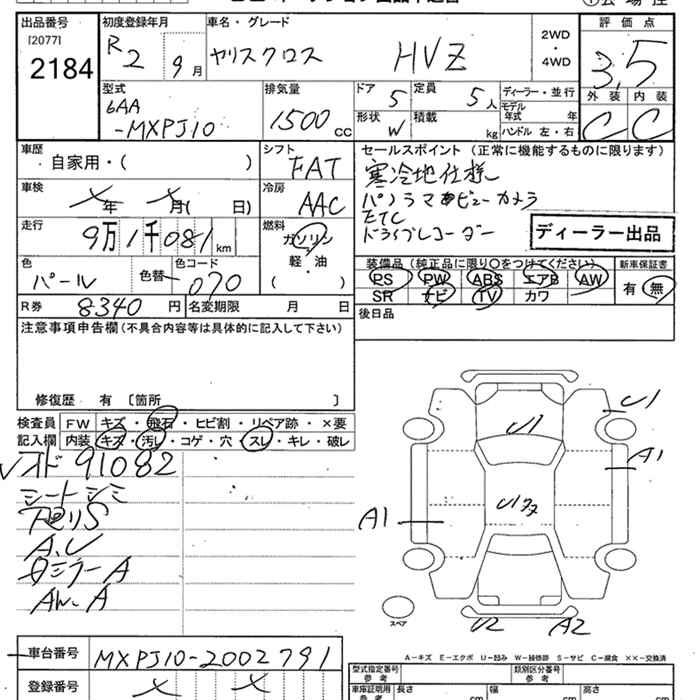 出品番号
[2077]
2184
初度登録年月
R2 9月
車名・グレード
ヤリスクロス HVZ
2WD
・
4WD
評価点
3.5
外装 内装
C C
型式
6AA
-MXPJ10
排気量
1500 CC
ドア 5
定員 5人
形状 W
積載 kg
ディーラー・並行
モデル年式 年
ハンドル 左・右
車歴
自家用・( )
シフト
FAT
車検
年 月( 日)
冷房
AAC
走行
9万1千081km
燃料
ガソリン
・
軽・油
( )
セールスポイント (正常に機能するものに限ります)
寒冷地仕様
パノラマビューカメラ
ETC
ドライブレコーダー
ディーラー出品
色
パール
色替
色コード
070
装備品 (純正品に限り○をつけてください)
PS PW ABS エアB AW
SR ナビ TV カワ
新車保証書
有・無
R券 8340円
名変期限 月 日
後日品
注意事項申告欄(不具合内容等は具体的に記入して下さい)
修復歴 有 〔箇所 〕
検査員
記入欄
FW キズ・飛石・ヒビ割・リペア跡・×要
内装 キズ・汚レ・コゲ・穴・スレ・キレ・破レ
91082
シートシミ
A.U
A
A
U1
U1
A1
A1
U2
A2
スペア
A-キズ E-エクボ U-凹み W-補修跡 S-サビ C-腐食 ××-交換済
車台番号 MXPJ10-2002791
登録番号
型式指定番号
参考
類別区分番号
参考
車庫証明用
参考
長さ cm
幅 cm
高さ cm